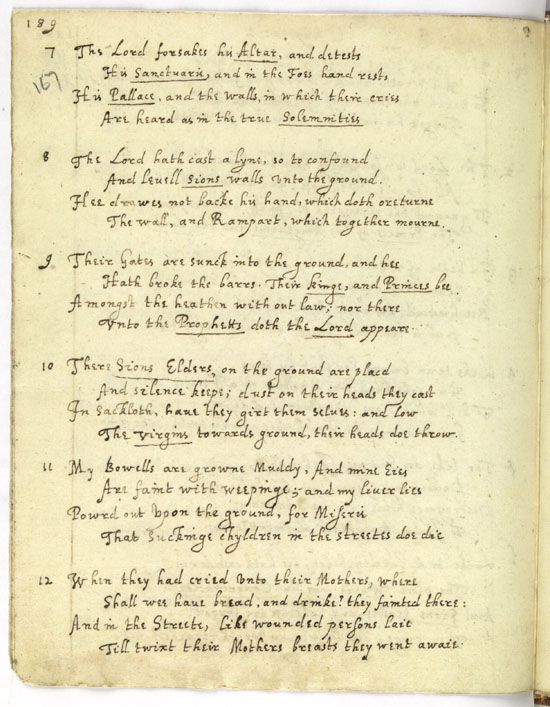 189
167
7 The Lord forsakes his Altar, and detests
His Sanctuarie, and in the Foes hand rests
His Pallace, and the walls, in which their cries
Are heard as in the true Solemnities
8 The Lord hath cast a lyne, so to confound
And levell Sions walls vnto the ground.
Hee drawes not backe his hand, which doth oreturne
The wall, and Rampart, which together mourne.
9 Their Gates are sunck into the ground, and hee
Hath broke the barrs. Their kinge, and Princes bee
Amongst the heathen with out law; nor there
Vnto the Prophetts doth the Lord appeare.
10 There Sions Elders, on the ground are placd
And silence keepe; dust on their heads they cast
In Sackloth, haue they girt them selues: and low
The virgins towards ground, their heads doe throw.
11 My Bowells are growne Muddy, And mine Eies
Are faint with weepinge; and my liuer lies
Powrd out Vpon the ground, for Miserie
That Suckinge chyldren in the streetes doe die
12 When they had cried Vnto their Mothers, where
Shall wee haue bread, and drinke? they fainted there:
And in the Streete, like wounded persons laie
Till twixt their Mothers breasts they went awaie.